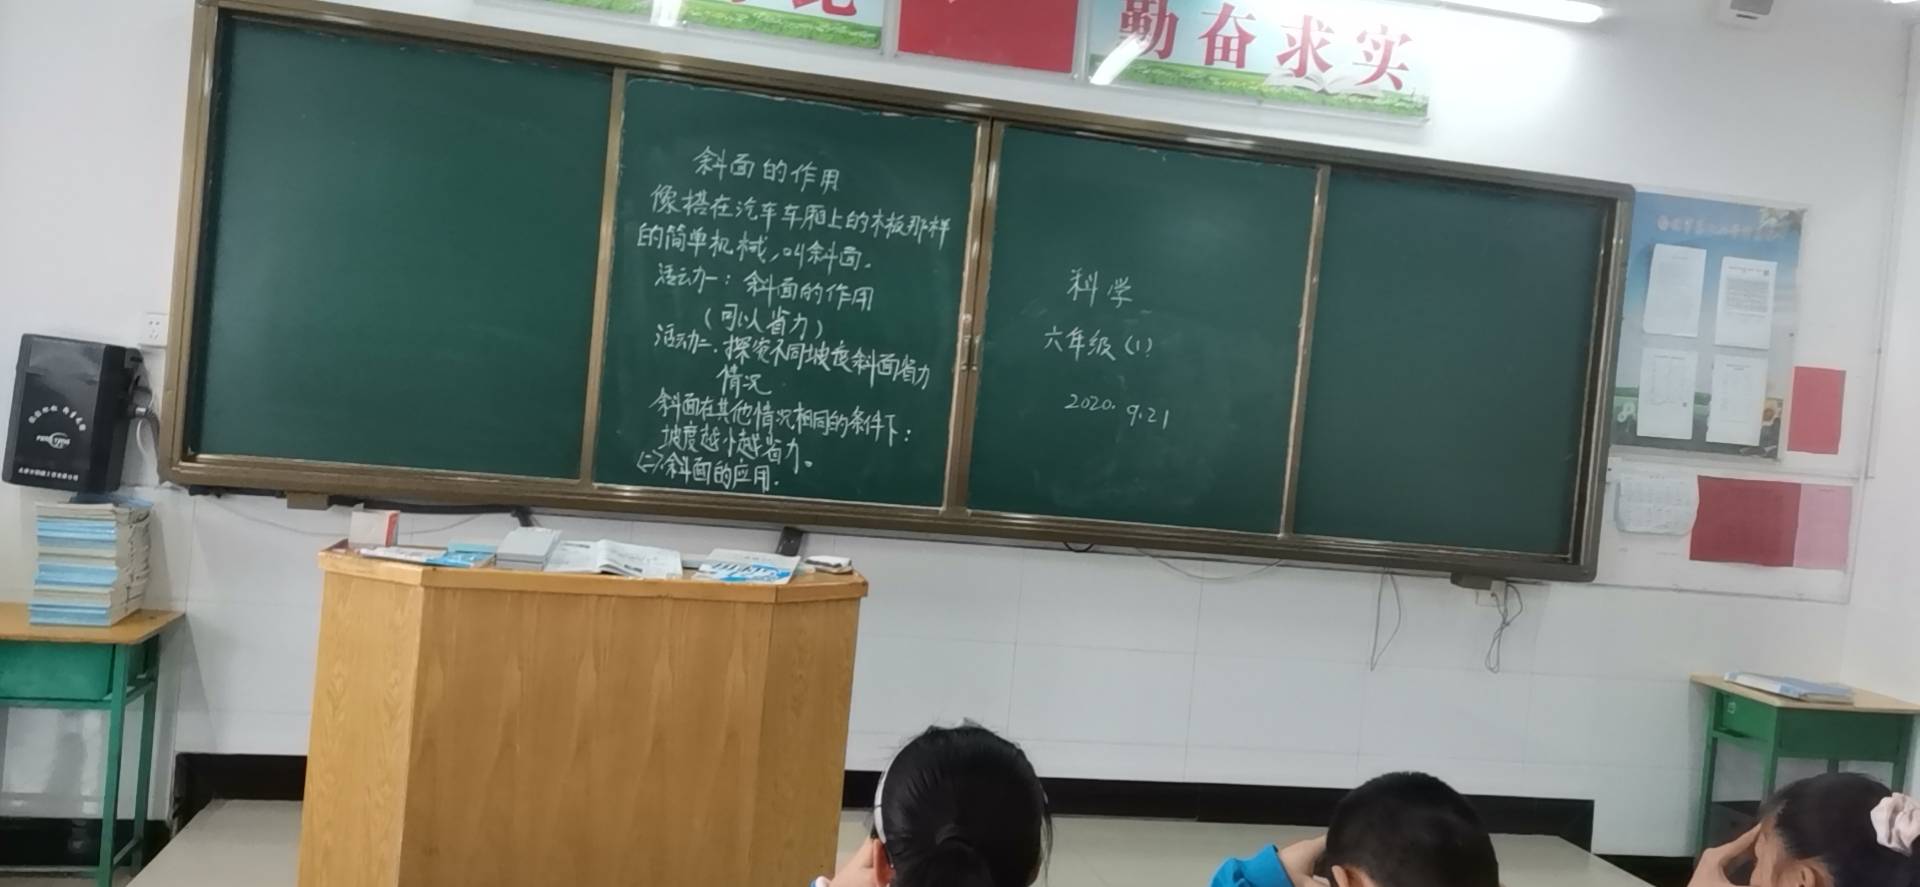 勤奋求实
斜面的作用
像搭在汽车车厢上的木板那样
的简单机械,叫斜面。
活动一:斜面的作用
(可以省力)
活动二.探究不同坡度斜面省力
情况.
斜面在其他情况相同的条件下:
坡度越小越省力。
(二)斜面的应用.
科学
六年级(1)
2020.9.21